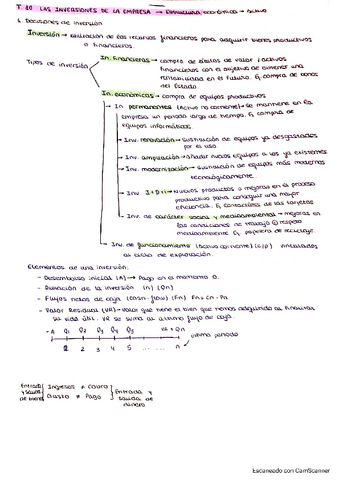 T. 10 LAS INVERSIONES DE LA EMPRESA → Estructura económica → activo
1. Decisiones de inversión
Inversión → utilización de los recursos financieros para adquirir bienes productivos
o financieros.
Tipos de inversión
In. financieras → compra de títulos de valor (activos
financieros con el objetivo de obtener una
rentabilidad en el futuro. Ej. compra de bonos
del Estado
In. económicas → compra de equipos productivos
In. permanentes (activo no corriente) → se mantiene en la
empresa un periodo largo de tiempo. Ej compra de
equipos informáticos
Inv. renovación → sustitución de equipos ya desgastados
por el uso
Inv. ampliación → añadir nuevos equipos a los ya existentes
Inv. modernización → sustitución de equipos más modernos
tecnológicamente.
Inv. I+D+i → Nuevos productos o mejoras en el proceso
productivo para conseguir una mayor
eficiencia. Ej contactless de las tarjetas
Inv. de carácter social y medioambiental → mejoras en
las condiciones de trabajo o respeto
medioambiente Ej papelera de reciclaje.
In. de funcionamiento (activo corriente) (c/p) vinculadas
al ciclo de explotación.
Elementos de una inversión:
- Desembolso inicial (A) → Pago en el momento 0.
- Duración de la inversión (n) (Qn)
- Flujos netos de caja (cash-flow) (Fn) Fn = Cn - Pn
- Valor Residual (VR) → valor que tiene el bien que hemos adquirido al finalizar
su vida útil. VR se suma al último flujo de caja
- A Q1 Q2 Q3 Q4 Q5 VR + Qn
1 2 3 4 5 ... ... n último periodo
Entrada y salida de bienes
Ingresos ≠ Cobro
Gasto ≠ Pago
Entrada y salida de dinero
Escaneado con CamScanner